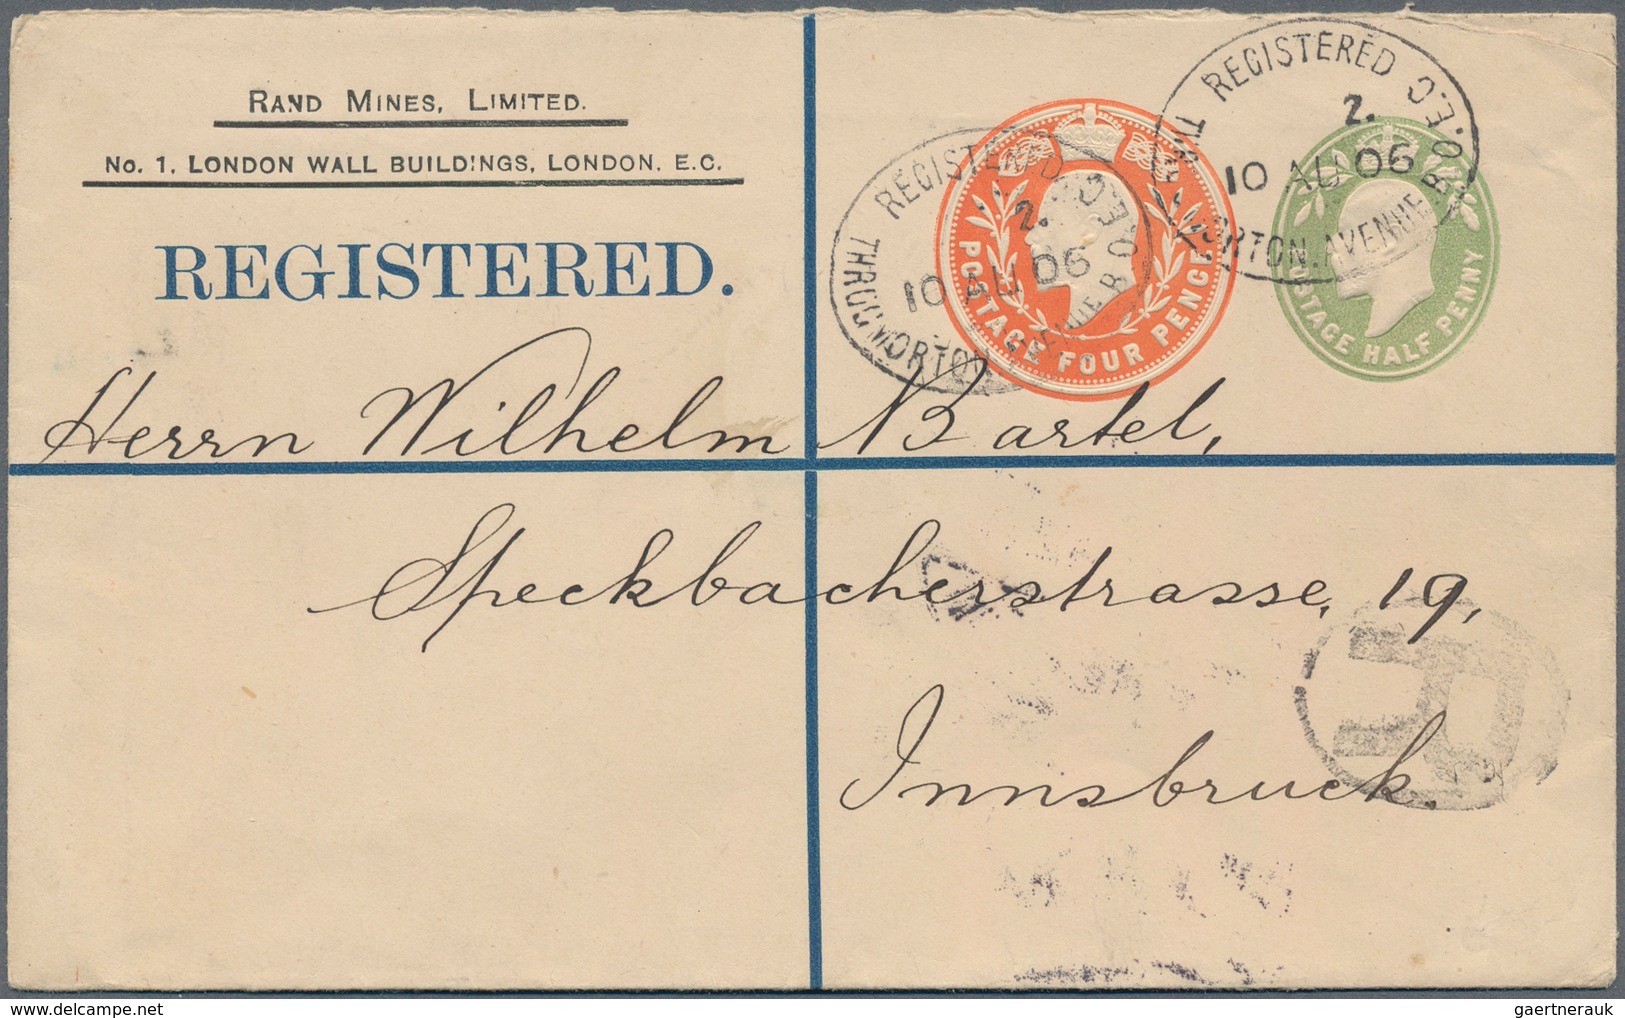 RAND MINES, LIMITED.
No. 1, LONDON WALL BUILDINGS, LONDON, E.C.
REGISTERED.
REGISTERED
THROGMORTON AVENUE B.O. E.C
2.
10 AU 06
POSTAGE FOUR PENCE
REGISTERED
THROGMORTON. AVENUE B.O. E.C
2.
10 AU 06
POSTAGE HALF PENNY
Herrn Wilhelm Bartel,
Speckbacherstrasse, 19,
Innsbruck.
R
gaertnerauk